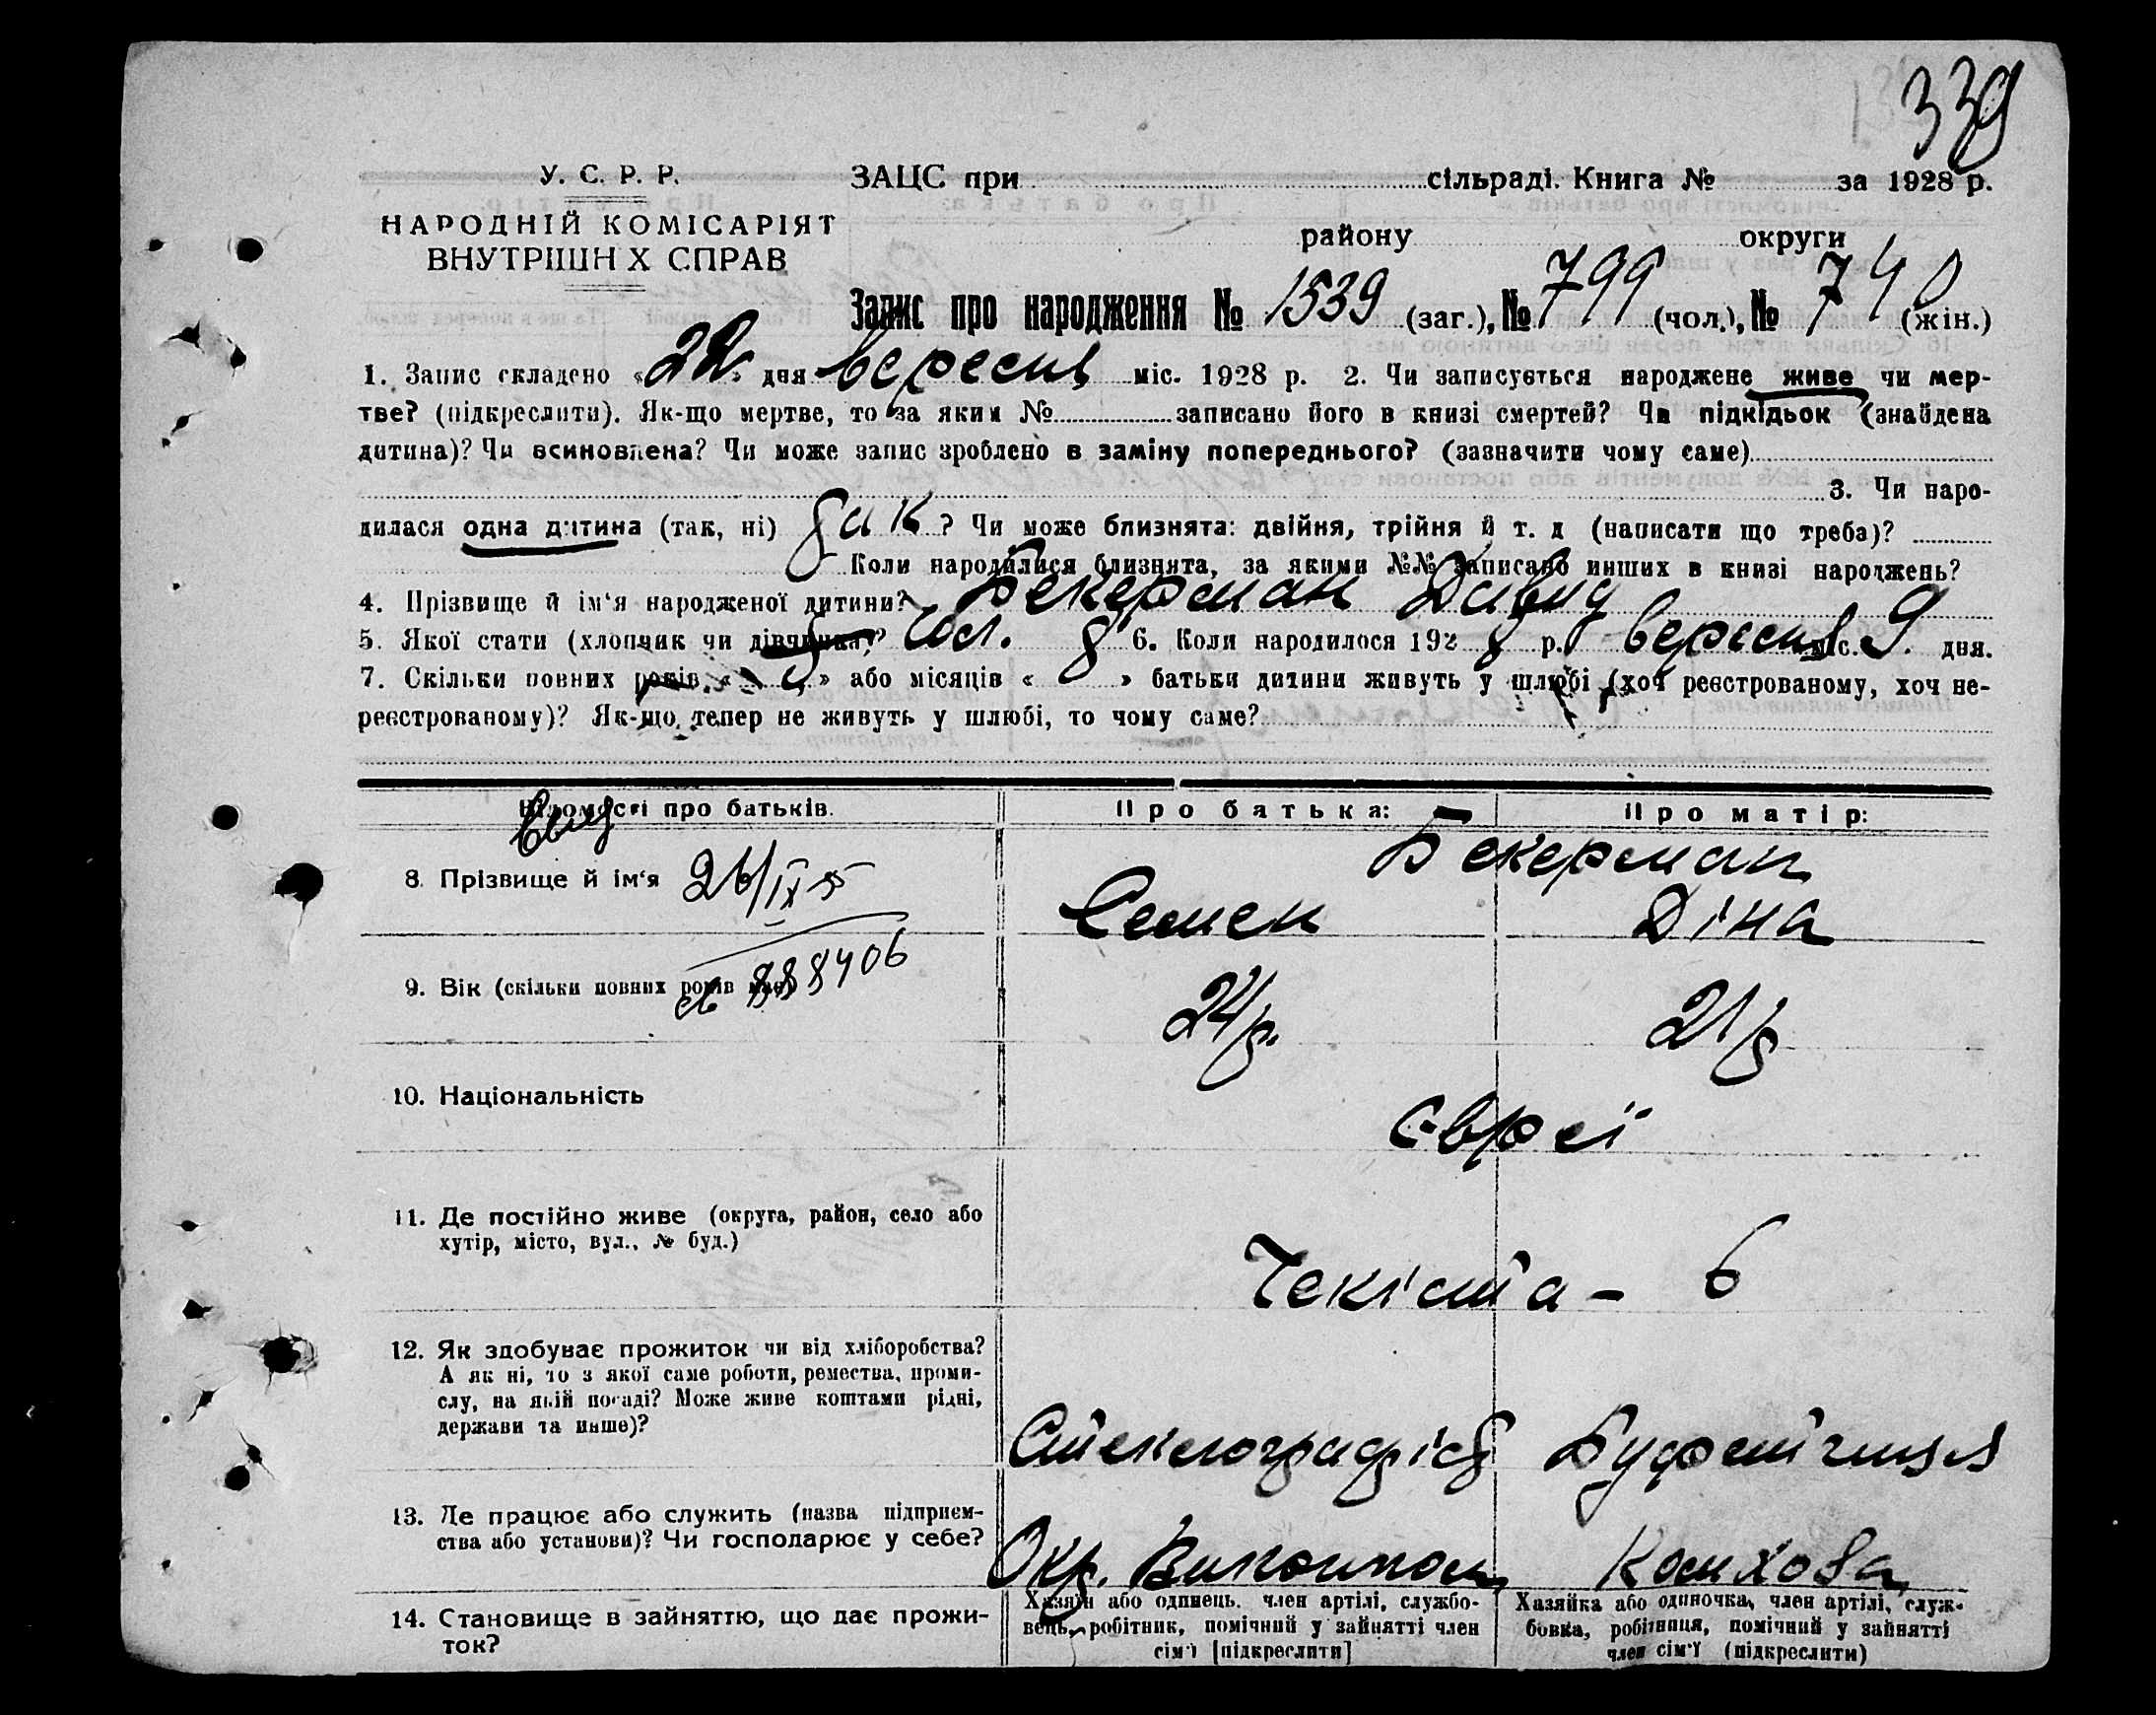 339
У. С. Р. Р.
ЗАЦС при сільраді. Книга № за 1928 р.
НАРОДНІЙ КОМІСАРІЯТ
ВНУТРІШН Х СПРАВ
району округи
Запис про народження № 1539 (заг.), № 799 (чол.), № 740 (жін.)
1. Запис складено « 22 » дня вересня міс. 1928 р. 2. Чи записується народжене живе чи мер-
тве? (підкреслити). Як-що мертве, то за яким № записано його в книзі смертей? Чи підкідьок (знайдена
дитина)? Чи всиновлена? Чи може запис зроблено в заміну попереднього? (зазначити чому саме)
3. Чи наро-
дилася одна дитина (так, ні) так ? Чи може близнята: двійня, трійня й т. д (написати що треба)?
Коли народилися близнята, за якими №№ записано инших в книзі народжень?
4. Прізвище й ім‘я народженої дитини? Бекерман Давид
5. Якої стати (хлопчик чи дівчинка)? Чол. 6. Коли народилося 192 8 р. вересня міс. 9. дня.
7. Скільки повних років « » або місяців « » батьки дитини живуть у шлюбі (хоч реєстрованому, хоч не-
реєстрованому)? Як-що тепер не живуть у шлюбі, то чому саме?
Відомості про батьків. Про батька: Про матір:
Бекерман
8. Прізвище й ім‘я 26/IX 55 Семен Діна
9. Вік (скільки повних років має) 888406 24/р. 21/р
10. Національність Євреї
11. Де постійно живе (округа, район, село або
хутір, місто, вул., № буд.)
Чекіста – 6
12. Як здобуває прожиток чи від хліборобства?
А як ні, то з якої саме роботи, ремества, проми-
слу, на якій посаді? Може живе коштами рідні,
держави та инше)?
Буфетчиця
13. Де працює або служить (назва підприєм-
ства або установи)? Чи господарює у себе?
Окр. Виконком
14. Становище в зайняттю, що дає прожи-
ток?
Хазяїн або одинець, член артілі, службо-
вець, робітник, помічний у зайнятті член
сім‘ї [підкреслити]
Хазяйка або одиночка, член артілі, служ-
бовка, робітниця, помічний у зайнятті
член сім‘ї (підкреслити)